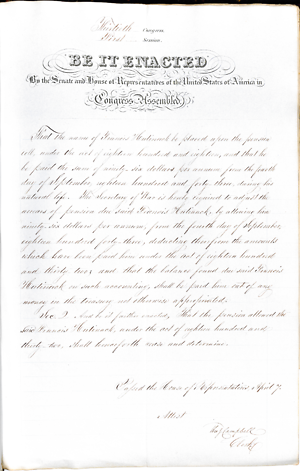 Thirtieth Congress
First Session
BE IT ENACTED
By the Senate and House of Representatives of the United States of America in
Congress Assembled,
That the name of Francis be placed upon the pension
roll, under the act of eighteen hundred and eighteen, and that he
be paid the sum of ninety six dollars per annum from the fourth
day of September, eighteen hundred and forty three, during his
natural life. The Secretary of War is hereby required to adjust the
arrears of pension due said Francis by allowing him
ninety six dollars per annum, from the fourth day of September,
eighteen hundred forty three, deducting therefrom the amounts
which have been paid him under the act of eighteen hundred
and thirty two; and that the balance found due said Francis
on such accounting, shall be paid him out of any
money in the treasury not otherwise appropriated.
Sec. 2. And be it further enacted, That the pension allowed the
said Francis under the act of eighteen hundred and
thirty two, shall henceforth cease and determine.
Passed the House of Representatives April 7.
Attest
Campbell
Clerk